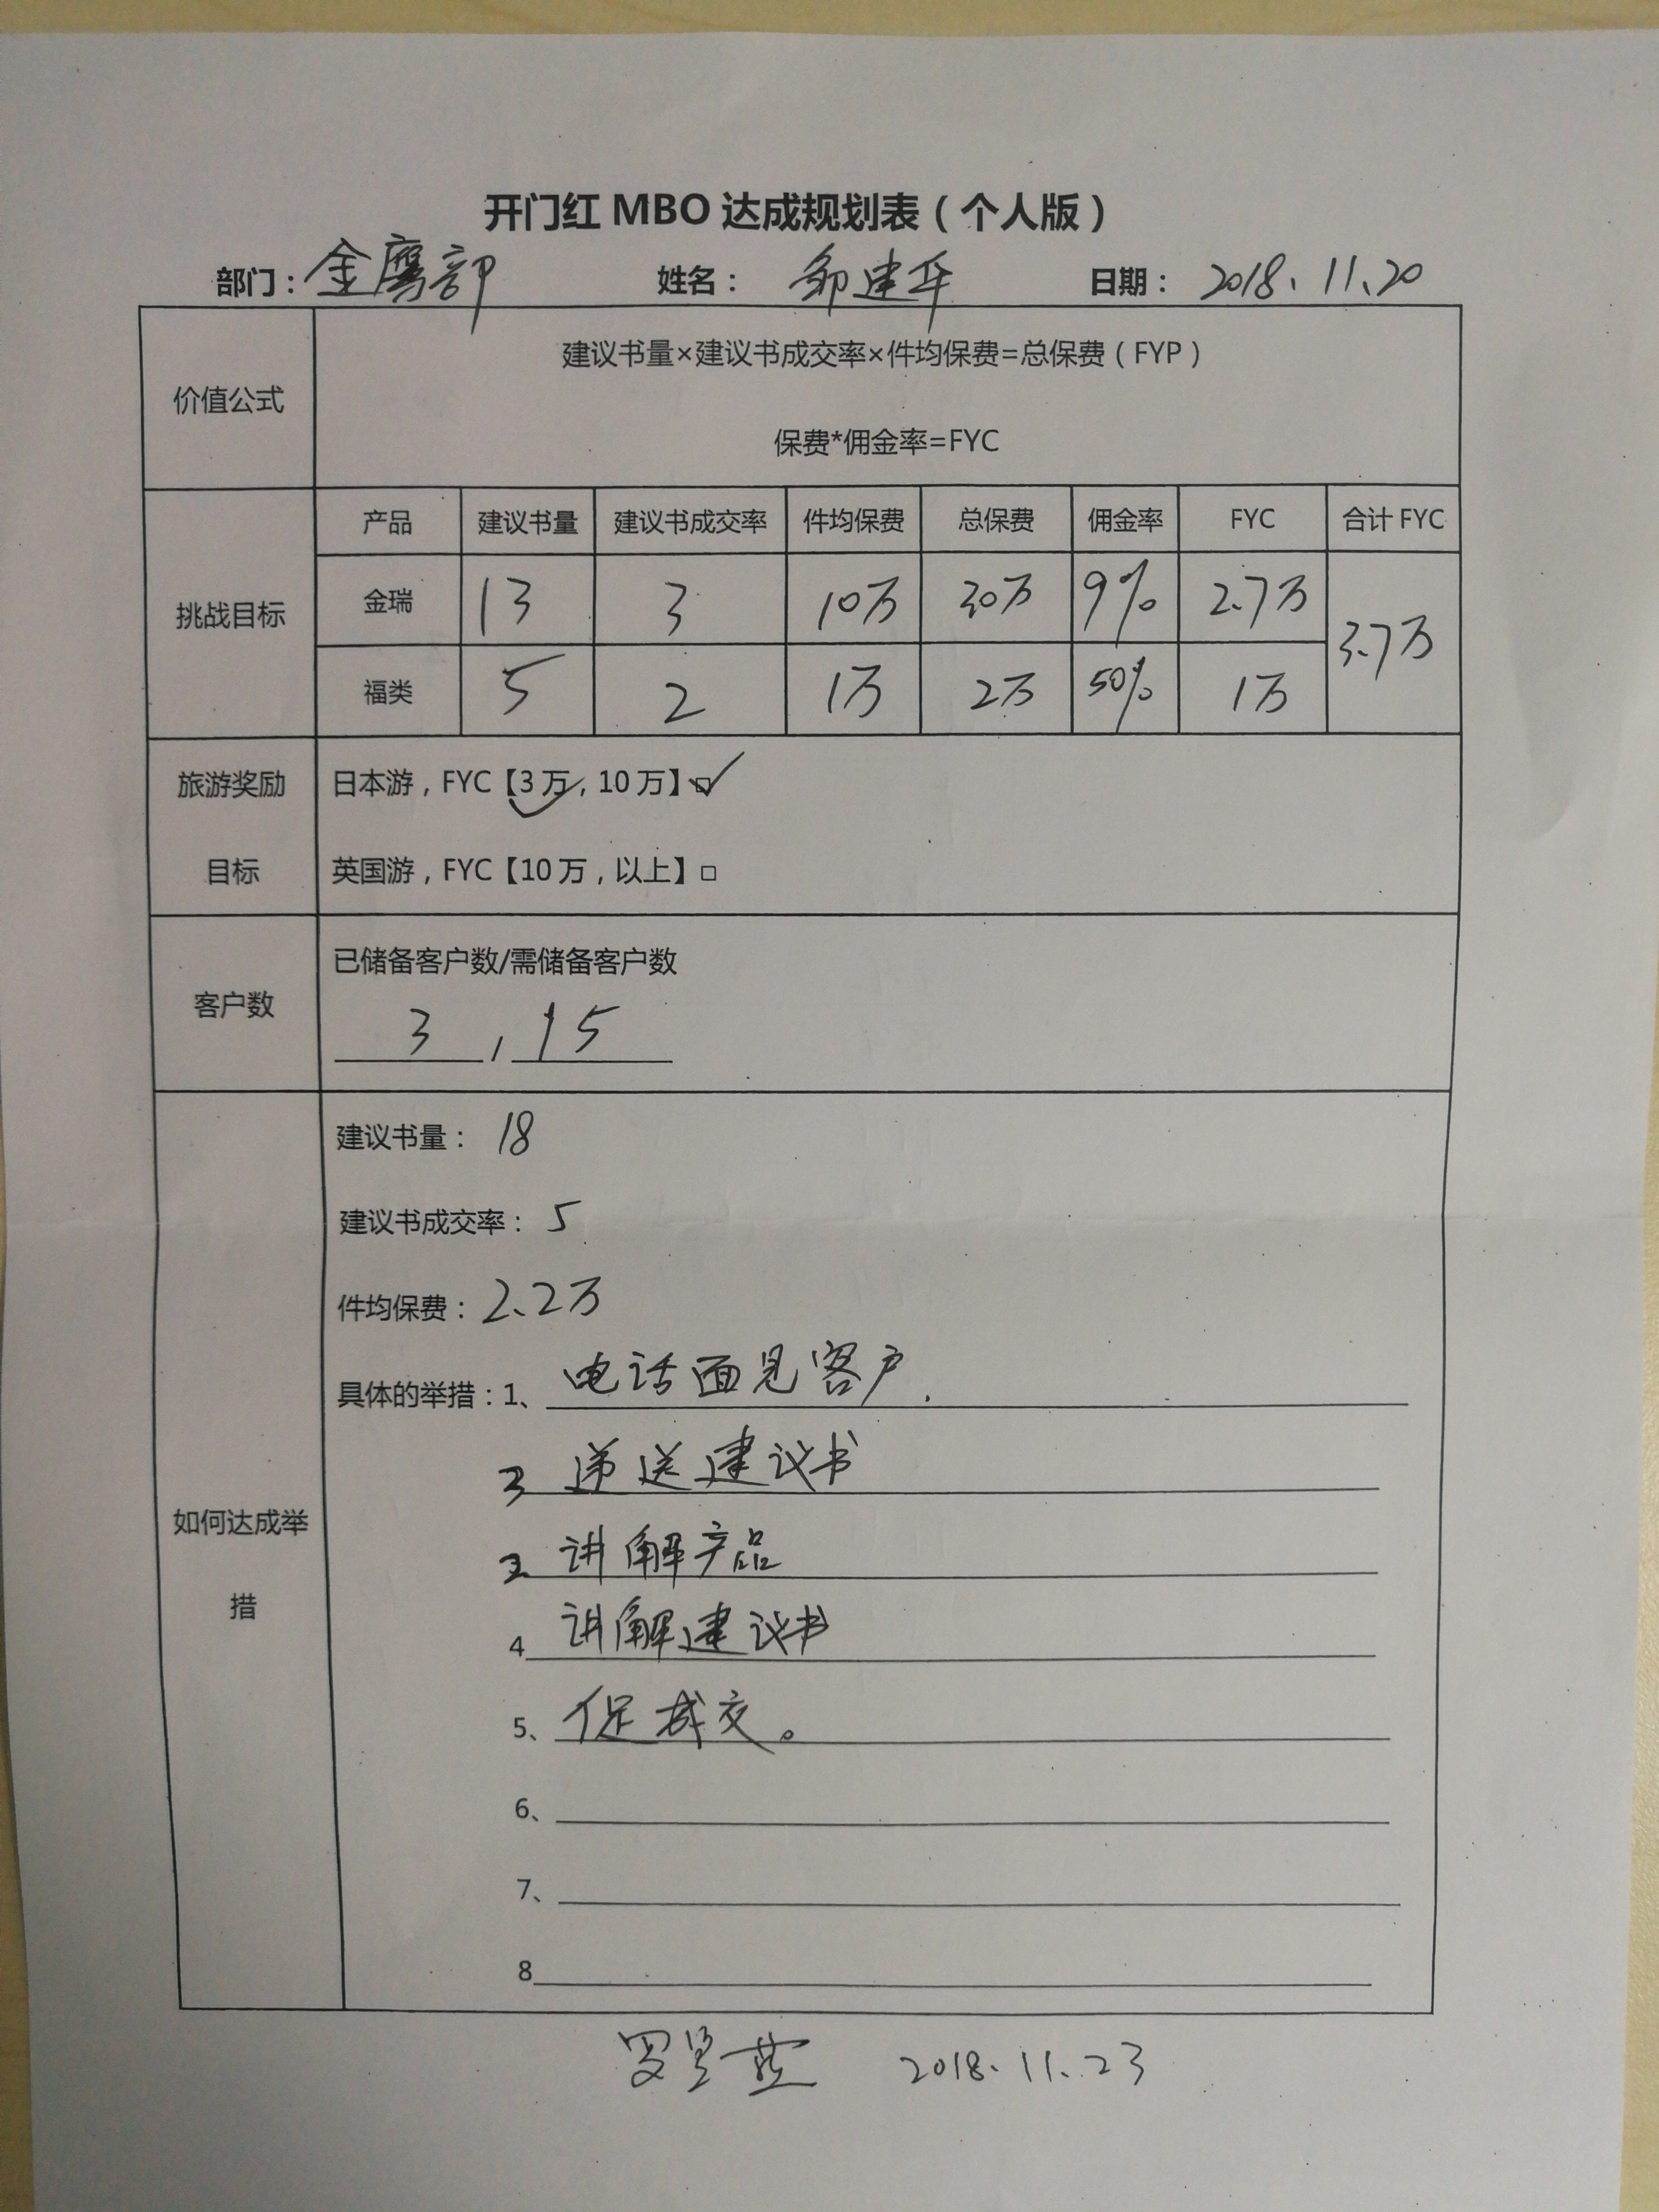 开门红 MBO 达成规划表（个人版）
部门：金鹰部 姓名：邹建华 日期：2018、11、20
价值公式
建议书量×建议书成交率×件均保费=总保费（FYP）
保费*佣金率=FYC
挑战目标
产品 建议书量 建议书成交率 件均保费 总保费 佣金率 FYC 合计 FYC
金瑞 13 3 10万 30万 9% 2.7万 3.7万
福类 5 2 1万 2万 50% 1万
旅游奖励
目标
日本游，FYC【3万，10万】☑
英国游，FYC【10万，以上】□
客户数
已储备客户数/需储备客户数
3 , 15
如何达成举
措
建议书量：18
建议书成交率：5
件均保费：2、2万
具体的举措：1、电话面见客户.
递送建议书
讲解产品
4 讲解建议书
5、促成交。
6、
7、
8
2018.11.23